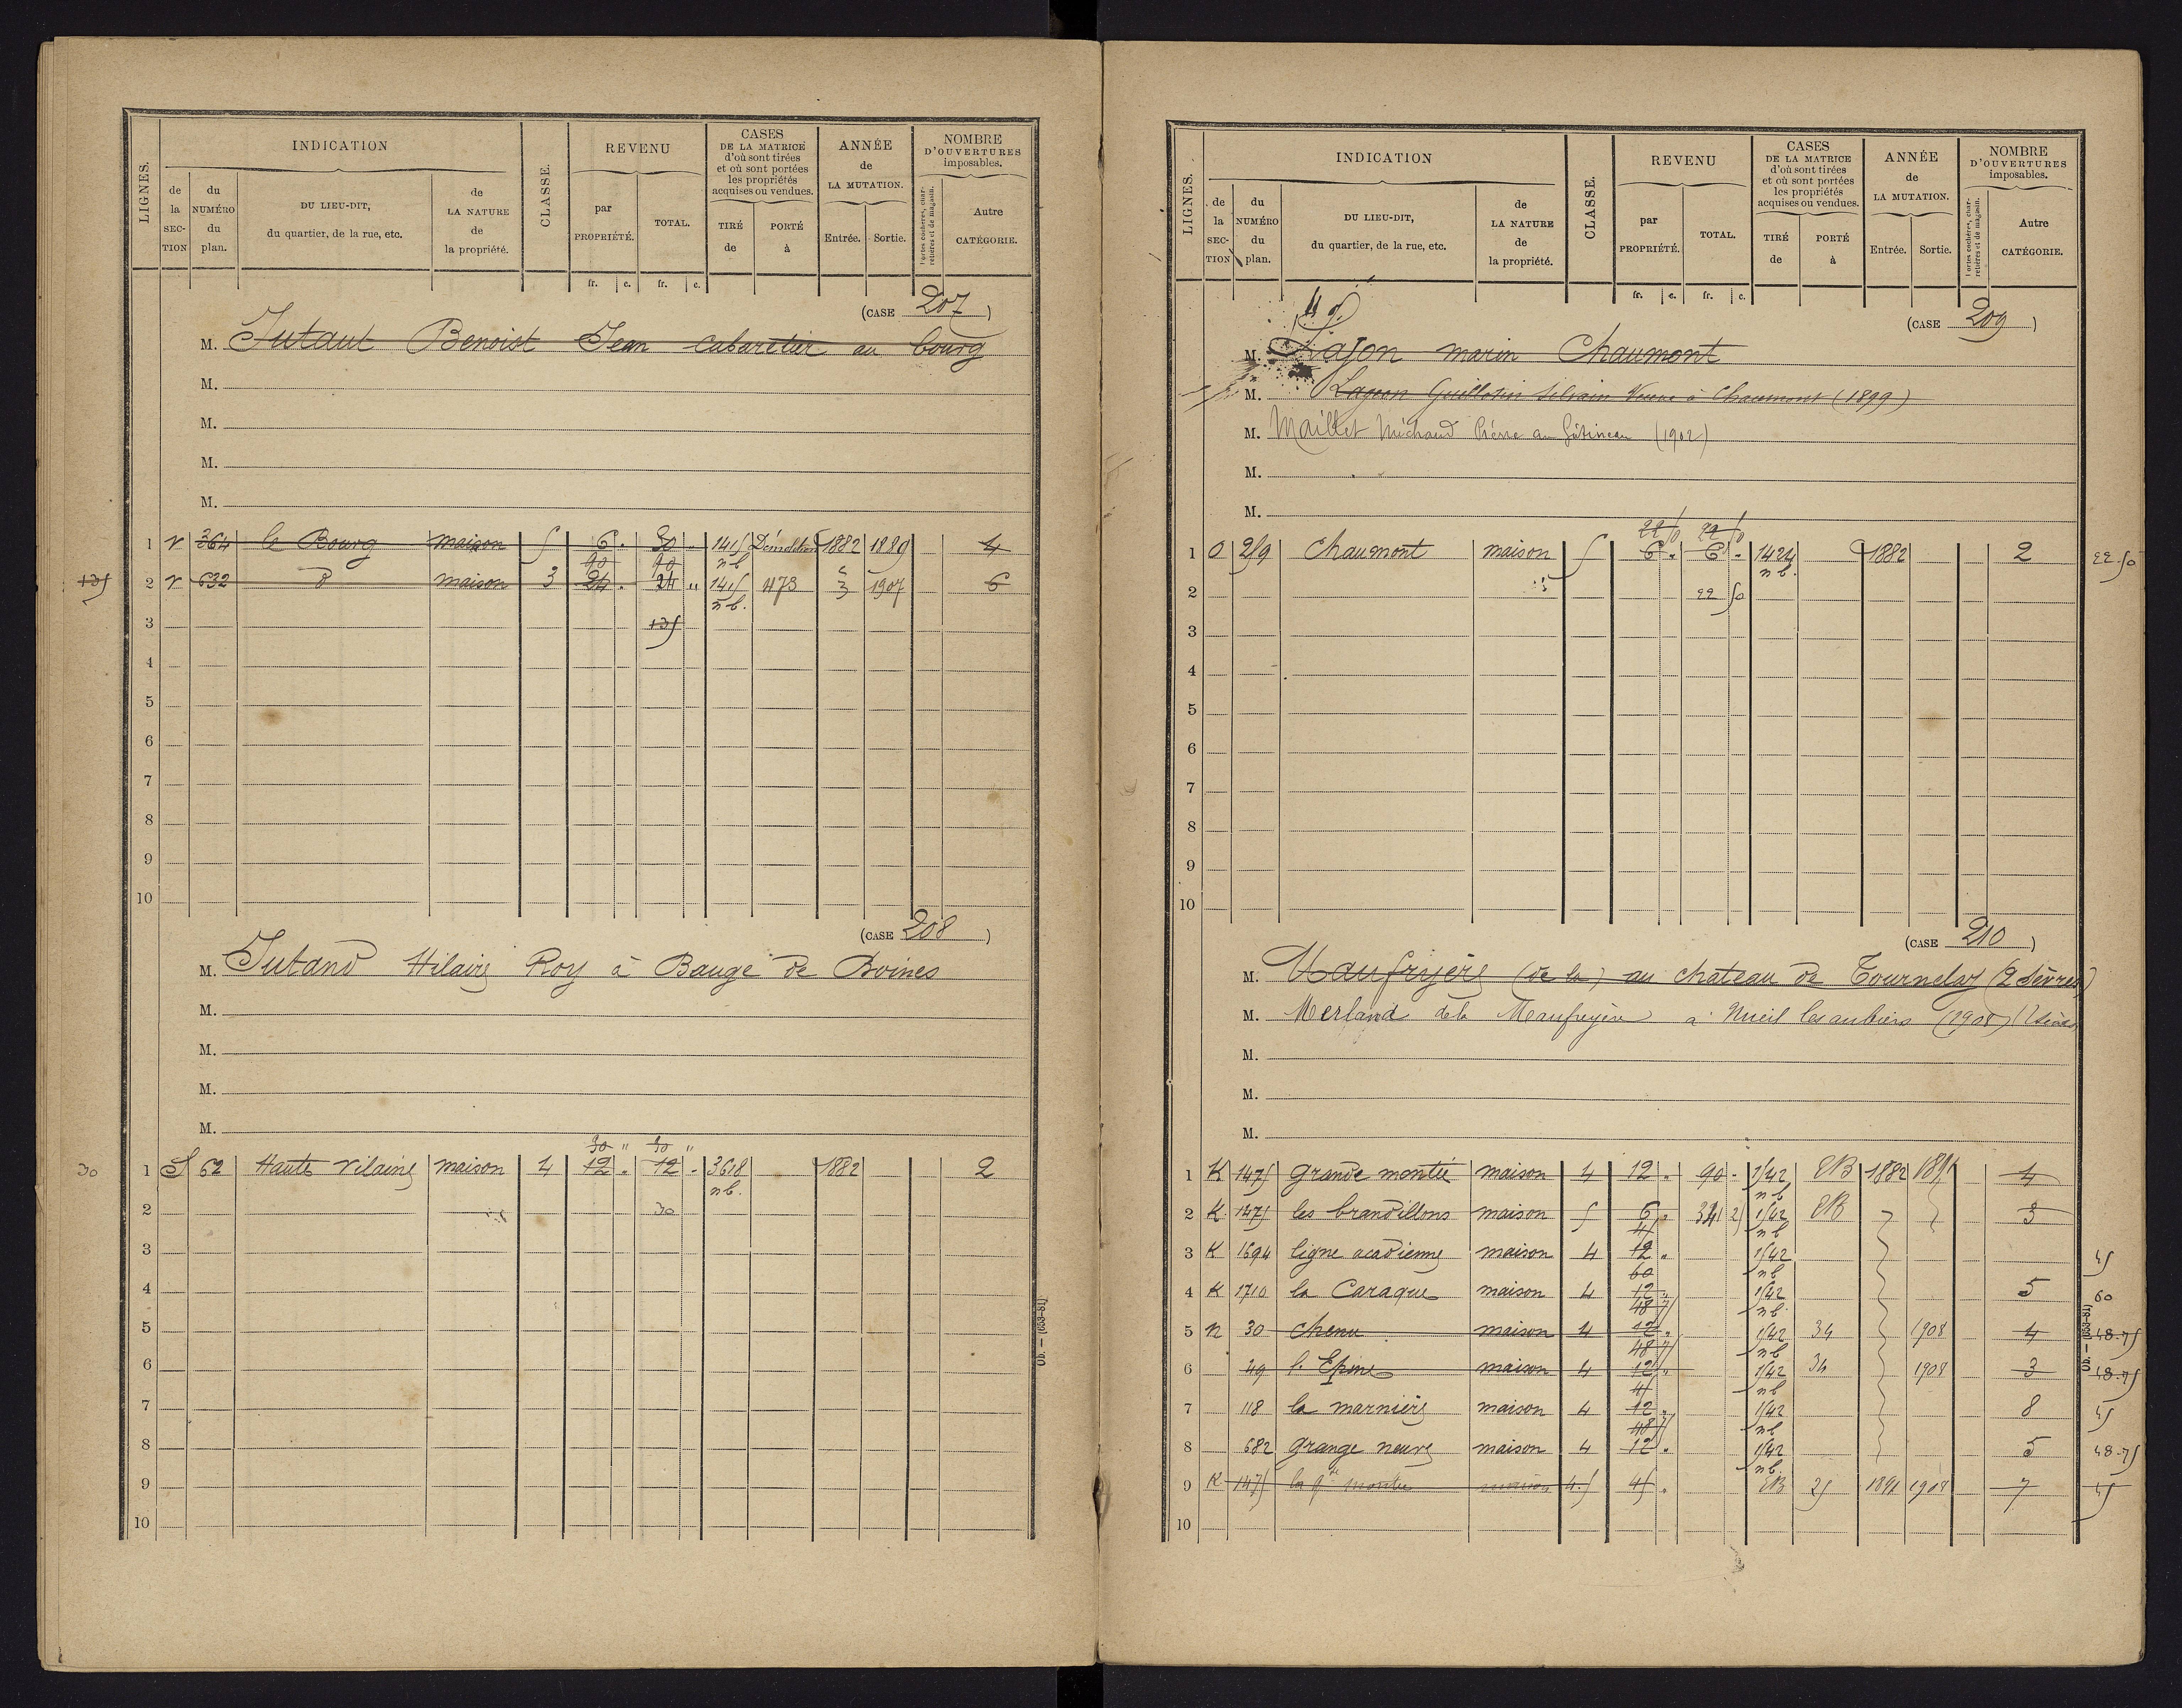 LIGNES.
INDICATION
de la SECTION
du NUMÉRO du plan.
DU LIEU-DIT, du quartier, de la rue, etc.
de LA NATURE de la propriété.
CLASSE.
REVENU
par PROPRIÉTÉ.
TOTAL.
CASES DE LA MATRICE d'où sont tirées et où sont portées les propriétés acquises ou vendues.
TIRÉ de
PORTÉ à
ANNÉE de LA MUTATION.
Entrée. Sortie.
NOMBRE D'OUVERTURES imposables.
Portes cochères, charretières et de magasin.
Autre CATÉGORIE.
fr. c. fr. c.
(CASE 207)
M. Jutaut Benoist Jean cabaretier au bourg
M.
M.
M.
M.
1 V 364 le Bourg maison 5 6 . 30 . 1415 Démolition 1882 1889 4
90 90 nb
135 2 V 632 d maison 3 24 . 24 " 1415 473 1907 6
nb.
3 135
4
5
6
7
8
9
10
(CASE 208)
M. Jutand Hilaire Roy à Bauge de Boines
M.
M.
M.
M.
30 " 30 "
30 1 S 62 Haute Vilaine maison 4 12 . 12 . 3618 1882 2
nb.
2 30
3
4
5
6
7
8
9
10
Ob. — (653-81)
LIGNES.
INDICATION
de la SECTION
du NUMÉRO du plan.
DU LIEU-DIT, du quartier, de la rue, etc.
de LA NATURE de la propriété.
CLASSE.
REVENU
par PROPRIÉTÉ.
TOTAL.
CASES DE LA MATRICE d'où sont tirées et où sont portées les propriétés acquises ou vendues.
TIRÉ de
PORTÉ à
ANNÉE de LA MUTATION.
Entrée. Sortie.
NOMBRE D'OUVERTURES imposables.
Portes cochères, charretières et de magasin.
Autre CATÉGORIE.
fr. c. fr. c.
(CASE 209)
M. Lajon marin Chaumont
M. Lajeon Guillotin Silvain Veuve à Chaumont (1899)
M. Maillet Michaud Pierre au Gâtineau (1902)
M.
M.
22 50 22 50
1 O 259 Chaumont maison 5 6 . 6 . 1424 1882 2 22.50
nb.
2 22 50
3
4
5
6
7
8
9
10
(CASE 210)
M. Maufreyère (de la) au chateau de Tournelay (2 Sèvres)
M. Merland de la Maufreyère à Nueil les aubiers (1908) (2 Sèvres)
M.
M.
M.
1 K 1475 Grande montée maison 4 12 . 90 . 1542 EB 1882 1891 4
nb
2 K 1475 les brandillons maison 5 6 . 341 25 1542 EB 3
45 nb
3 K 1694 ligne acadienne maison 4 12 . 1542 45
60 nb
4 K 1710 la Caraque maison 4 12 . 1542 5 60
48 75 nb.
5 N 30 Chenu maison 4 12 . 1542 34 1908 4 48.75
48 75 nb
6 49 l'Epine maison 4 12 . 1542 34 1908 3 48.75
45 nb
7 118 la marnière maison 4 12 . 1542 8 45
48 75 nb
8 682 Grange neuve maison 4 12 . 1542 5 48.75
nb
9 K 1475 la gde montée maison 4.5 45 . EB 25 1891 1908 7 45
10
Ob. — (653-81)